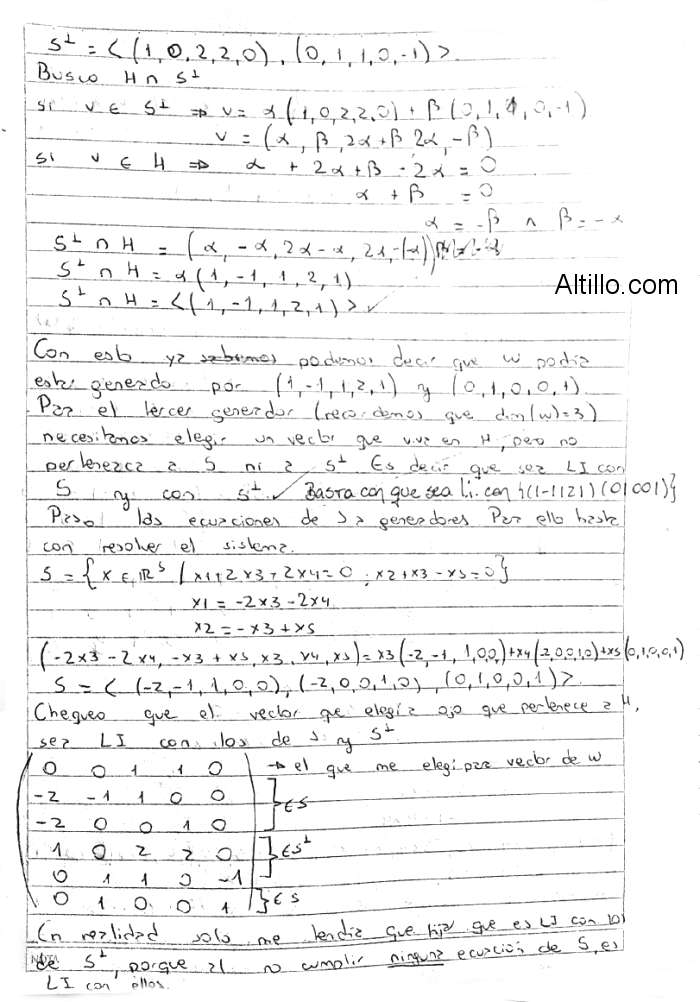 S⊥ = < (1, 0, 2, 2, 0), (0, 1, 1, 0, -1) >.
Busco H ∩ S⊥
si v ∈ S⊥ ⇒ v = α(1, 0, 2, 2, 0) + β(0, 1, 1, 0, -1)
v = (α, β, 2α+β 2α, -β)
si v ∈ H ⇒ α + 2α + β - 2α = 0
α + β = 0
α = -β ∧ β = -α
S⊥ ∩ H = (α, -α, 2α - α, 2α, -(-α))
S⊥ ∩ H = α(1, -1, 1, 2, 1)
Altillo.com
S⊥ ∩ H = < (1, -1, 1, 2, 1) > ✓
Con esto ya sabemos podemos decir que W podia
estar generado por (1, -1, 1, 2, 1) y (0, 1, 0, 0, 1)
Para el tercer generador (recordemos que dim(W)=3)
necesitamos elegir un vector que viva en H, pero no
pertenezca a S ni a S⊥ Es decir que sea LI con
S y con S⊥ ✓ Basta con que sea li. con {(1-1121) (01001)}
Paso las ecuaciones de S a generadores Para ello basta
con resolver el sistema.
S = { x ∈ ℝ5 / x1+2x3+2x4=0 ; x2+x3-x5=0 }
x1 = -2x3 - 2x4
x2 = -x3 + x5
(-2x3-2x4, -x3+x5, x3, x4, x5) = x3(-2,-1,1,0,0)+x4(-2,0,0,1,0)+x5(0,1,0,0,1)
S = < (-2,-1,1,0,0), (-2,0,0,1,0), (0,1,0,0,1) >.
Chequeo que el vector que elegía ojo que pertenece a H,
sea LI con los de S y S⊥
0 0 1 1 0 → el que me elegi para vector de W
-2 -1 1 0 0
-2 0 0 1 0 } ∈ S
1 0 2 2 0
0 1 1 0 -1 } ∈ S⊥
0 1 0 0 1 } ∈ S
En realidad solo me tendia que fijar que es LI con los
de S⊥, porque al no cumplir ninguna ecuación de S, es
LI con ellos.